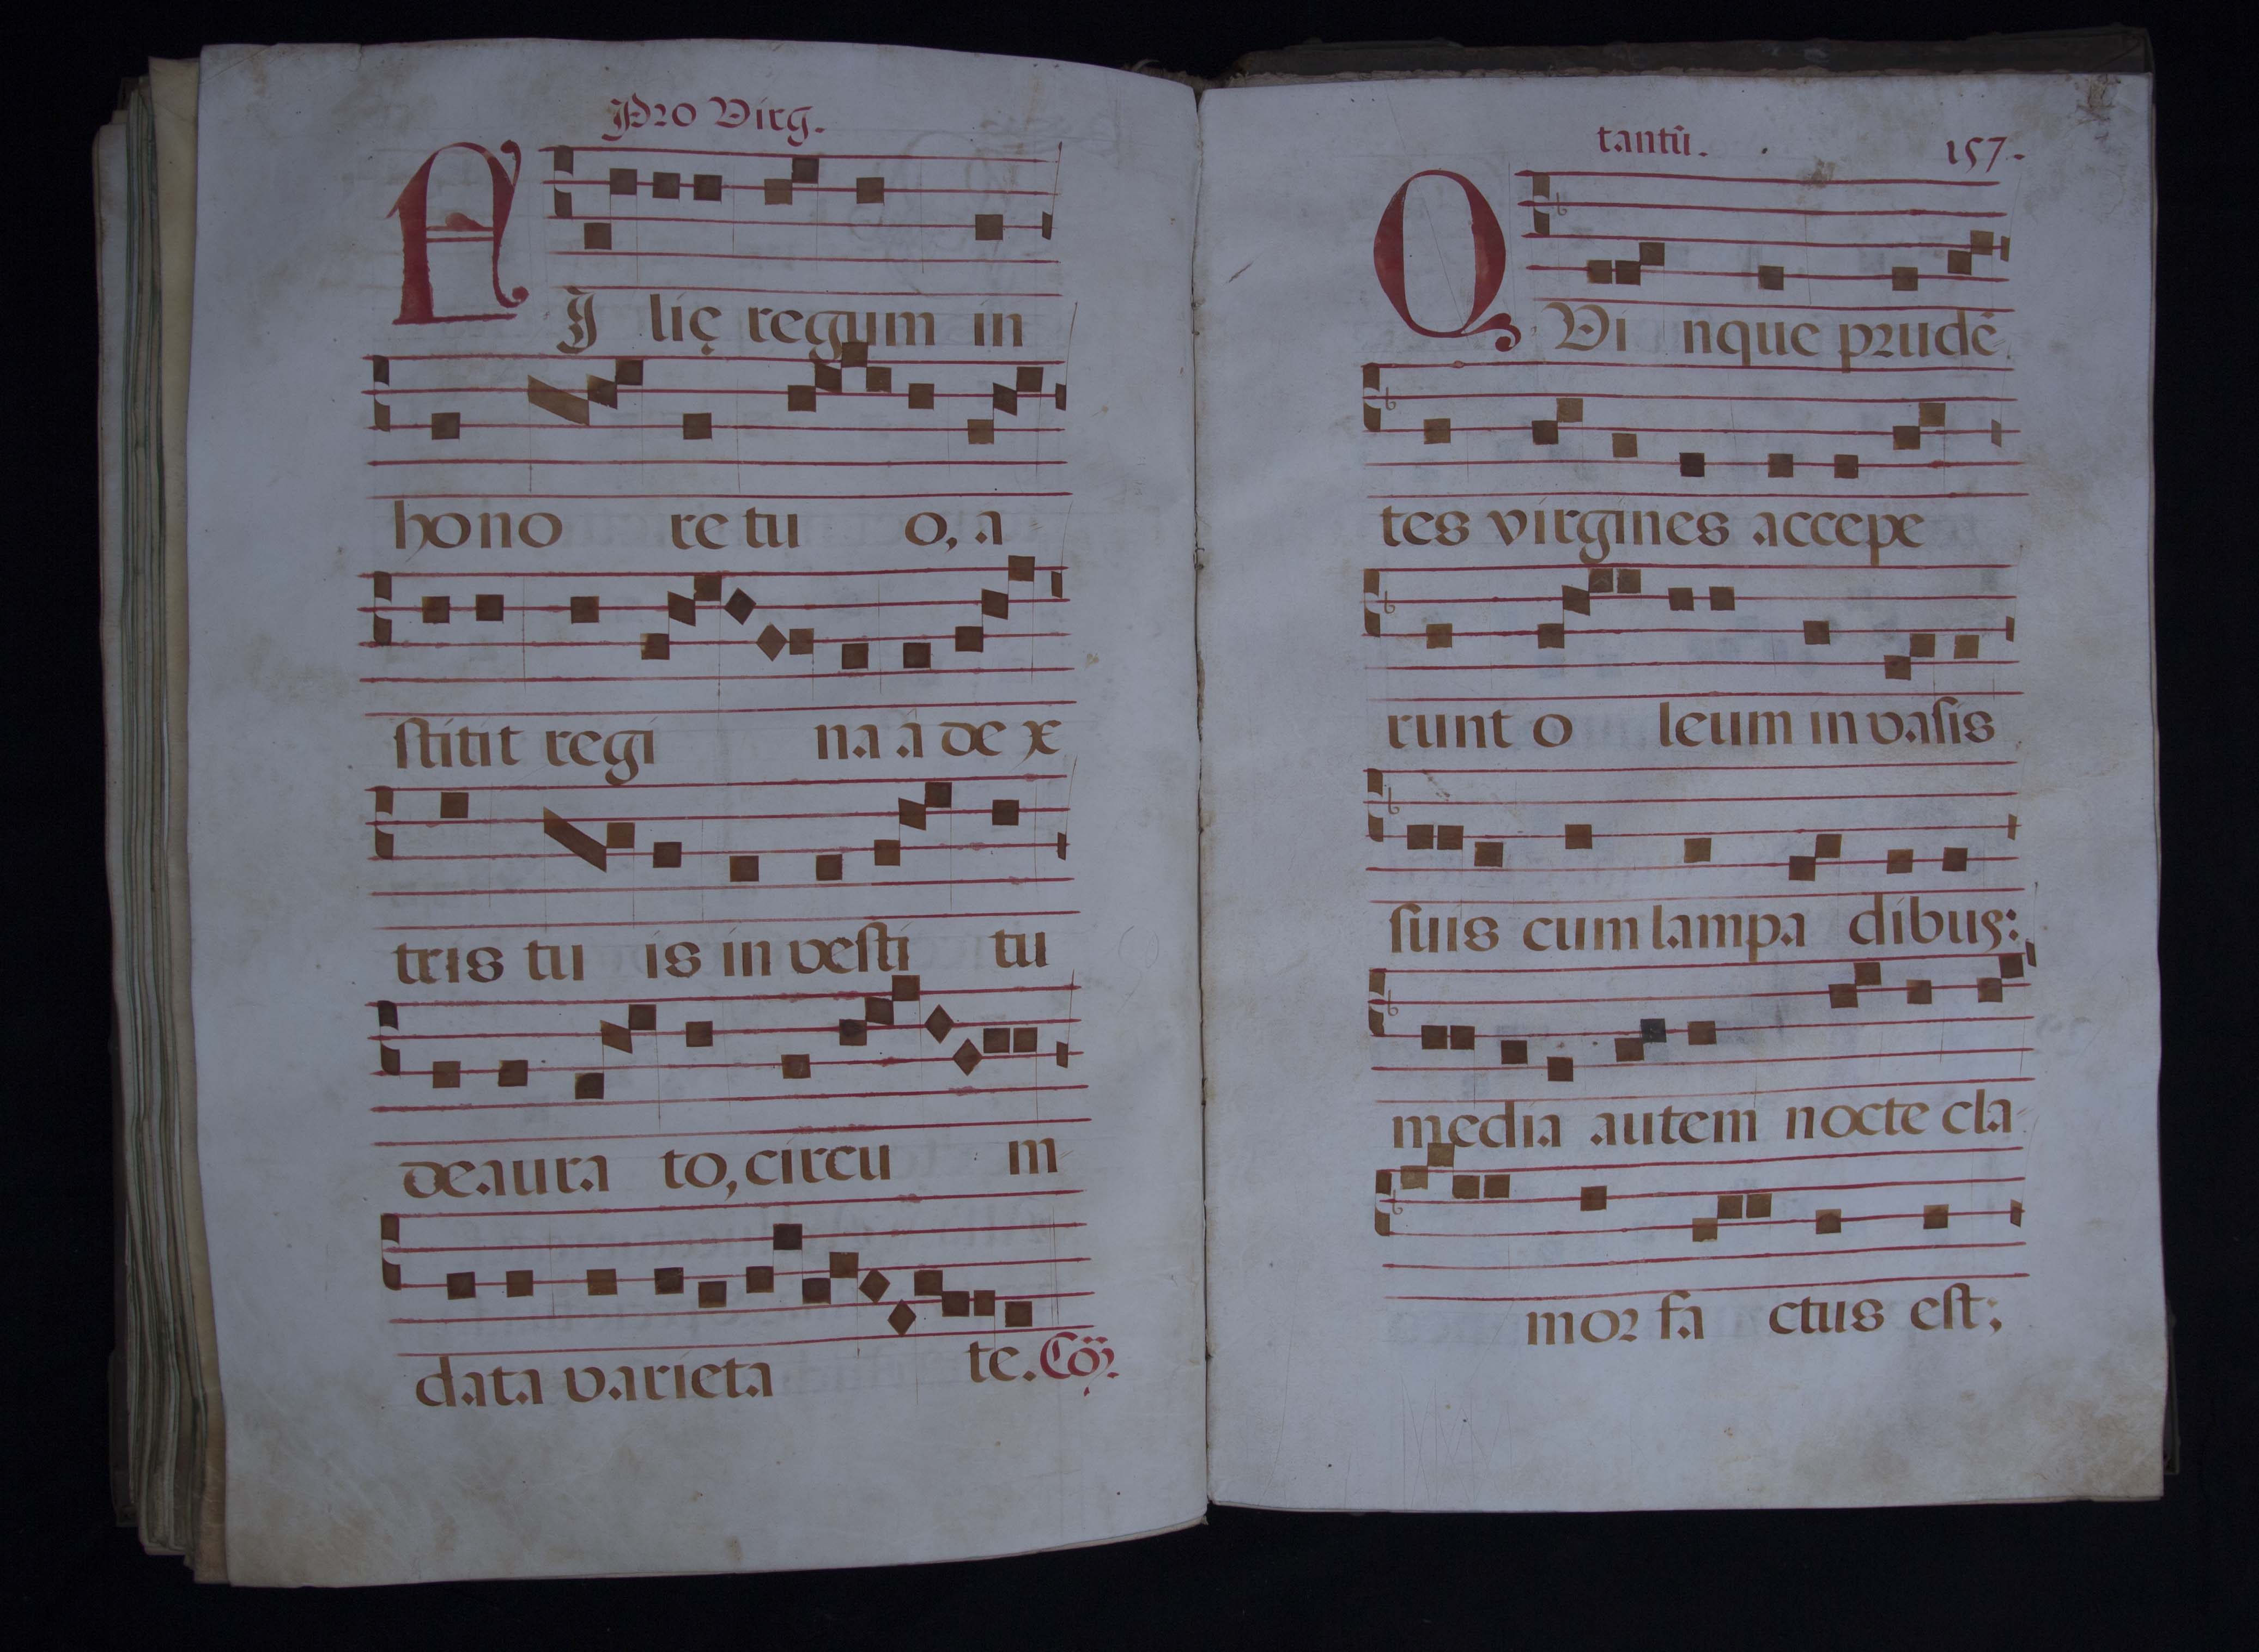 Pro Virg.
FI lię regum in
hono re tu o, a
ſtitit regi na â de x
tris tu is in veſti tu
deaura to, circu m
data varieta te. Cõ.
tantũ. 157.
QVi nque prudẽ
tes virgines accepe
runt o leum in vaſis
ſuis cum lampa dibus:
media autem nocte cla
mor fa ctus eſt;